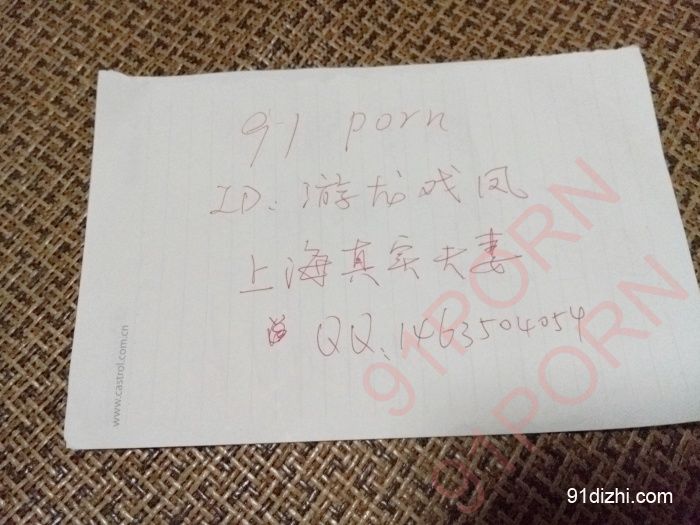 91 porn
ID: 游龙戏凤
上海真实夫妻
QQ: 1463504054
www.castrol.com.cn
91PORN
91PORN
91dizhi.com